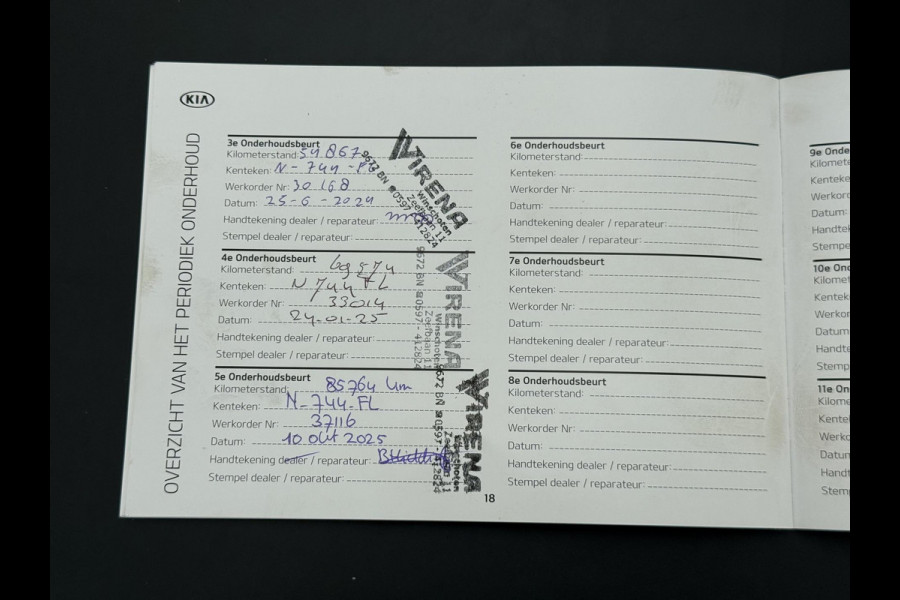 KIA
OVERZICHT VAN HET PERIODIEK ONDERHOUD
3e Onderhoudsbeurt
Kilometerstand: 54867
Kenteken: N-744-FL
Werkorder Nr: 30168
Datum: 25-6-2024
Handtekening dealer / reparateur:
Stempel dealer / reparateur:
WIRENA
Winschoten
Zeefbaan 11
9672 BN 0597-412824
4e Onderhoudsbeurt
Kilometerstand: 69574
Kenteken: N 744 FL
Werkorder Nr: 33014
Datum: 24-01-25
Handtekening dealer / reparateur:
Stempel dealer / reparateur:
WIRENA
Winschoten
Zeefbaan 11
9672 BN 0597-412824
5e Onderhoudsbeurt
Kilometerstand: 85764 km
Kenteken: N-744-FL
Werkorder Nr: 37116
Datum: 10 okt 2025
Handtekening dealer / reparateur:
Stempel dealer / reparateur:
WIRENA
Winschoten
Zeefbaan 11
9672 BN 0597-412824
18
6e Onderhoudsbeurt
Kilometerstand:
Kenteken:
Werkorder Nr:
Datum:
Handtekening dealer / reparateur:
Stempel dealer / reparateur:
7e Onderhoudsbeurt
Kilometerstand:
Kenteken:
Werkorder Nr:
Datum:
Handtekening dealer / reparateur:
Stempel dealer / reparateur:
8e Onderhoudsbeurt
Kilometerstand:
Kenteken:
Werkorder Nr:
Datum:
Handtekening dealer / reparateur:
Stempel dealer / reparateur:
9e Onde
Kilomete
Kenteke
Werkor
Datum:
Handte
Stempe
10e Ond
Kilomet
Kentek
Werkor
Datum
Handte
Stemp
11e On
Kilome
Kentel
Werko
Datun
Handt
Stem